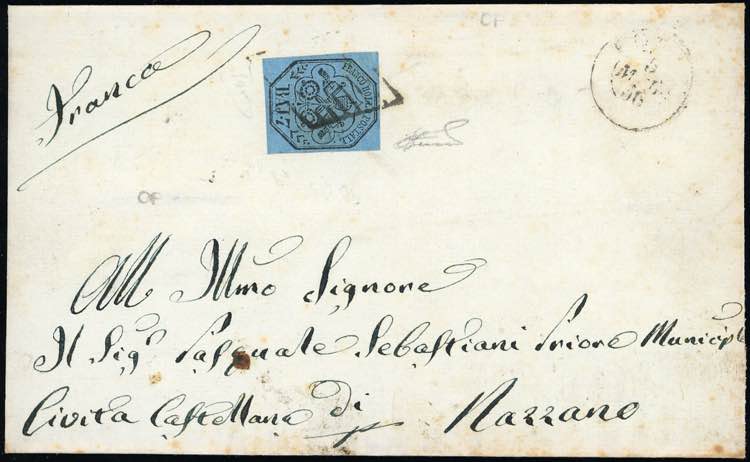 Franca
FRANCO BOLLO POSTALE
BAJ: 7
OF
OF
All Illmo Signore
Il Sigr Pasquale Sebastiani Priore Municiple
Civita Castellana di Nazzano